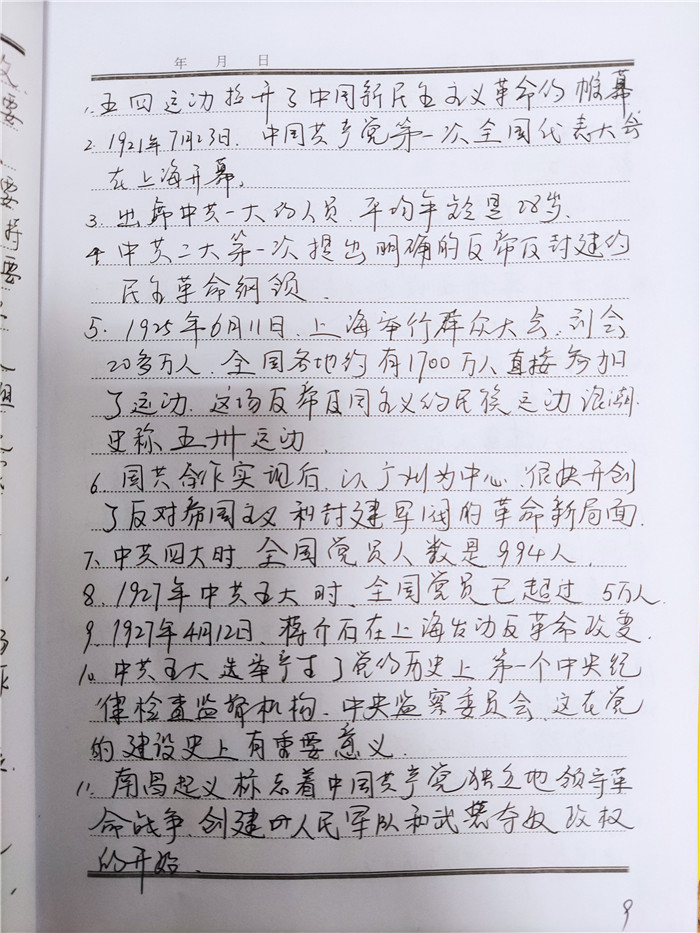 年 月 日
1. 五四运动拉开了中国新民主主义革命的帷幕
2. 1921年7月23日. 中国共产党第一次全国代表大会
在上海开幕。
3. 出席中共一大的人员. 平均年龄是28岁.
4. 中共二大第一次提出明确的反帝反封建的
民主革命纲领.
5. 1925年6月11日. 上海举行群众大会. 到会
20多万人. 全国各地约有1700万人直接参加
了运动. 这场反帝国主义的民族运动浪潮.
史称五卅运动.
6. 国共合作实现后. 以广州为中心. 很快开创
了反对帝国主义和封建军阀的革命新局面.
7. 中共四大时. 全国党员人数是994人.
8. 1927年中共五大时. 全国党员已超过5万人.
9. 1927年4月12日. 蒋介石在上海发动反革命政变.
10. 中共五大选举产生了党的历史上第一个中央纪
律检查监督机构. 中央监察委员会. 这在党
的建设史上有重要意义.
11. 南昌起义标志着中国共产党独立地领导革
命战争. 创建人民军队和武装夺取政权
的开始.
9